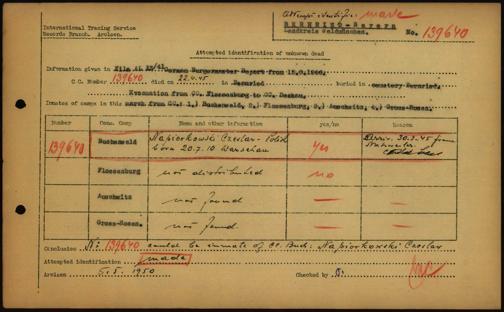 Attempt identific. made
International Tracing Service
Records Branch. Arolsen.
BERNRIED-Bayern
Landkreis
No. 139640
Attempted identification of unknown dead
Information given in File AL 12/41 German Burgermaster Report from 15.6.1946.
C.C. Number 139640 died on 22.4.45 in Bernried buried in cemetery Bernried.
Evacuation from CC. Flossenburg to CC. Dachau.
Inmates of camps in this march from CC.: 1.) Buchenwald, 2.) Flossenburg, 3.) Auschwitz, 4.) Gross-Rosen.
Number Conc. Camp Name and other information yes/no Reason
139640 Buchenwald Napiorkowski Czeslav - Polish
born 20.7.10 Warschau yes 30.3.45 from
Flossenburg not distributed no
Auschwitz not found —
Gross-Rosen. not found —
Conclusion Nr 139640 could be inmate of CC. Bud. Napiorkowski Czeslav
Attempted identification made
Arolsen 5.5. 1950 Checked by